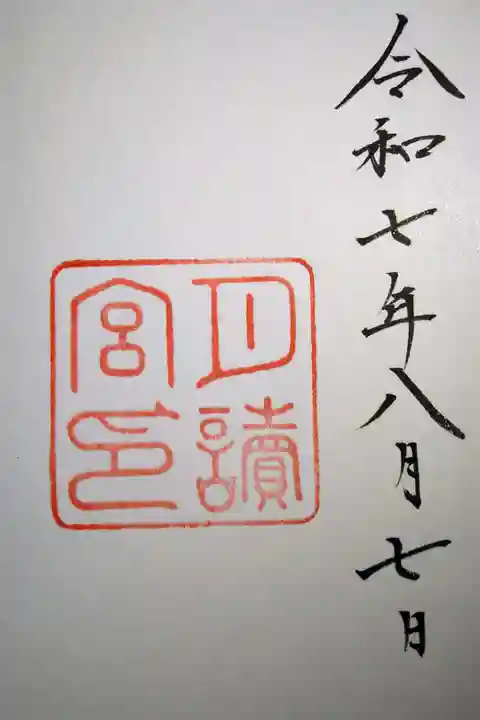 令和七年八月七日
月讀
宮印